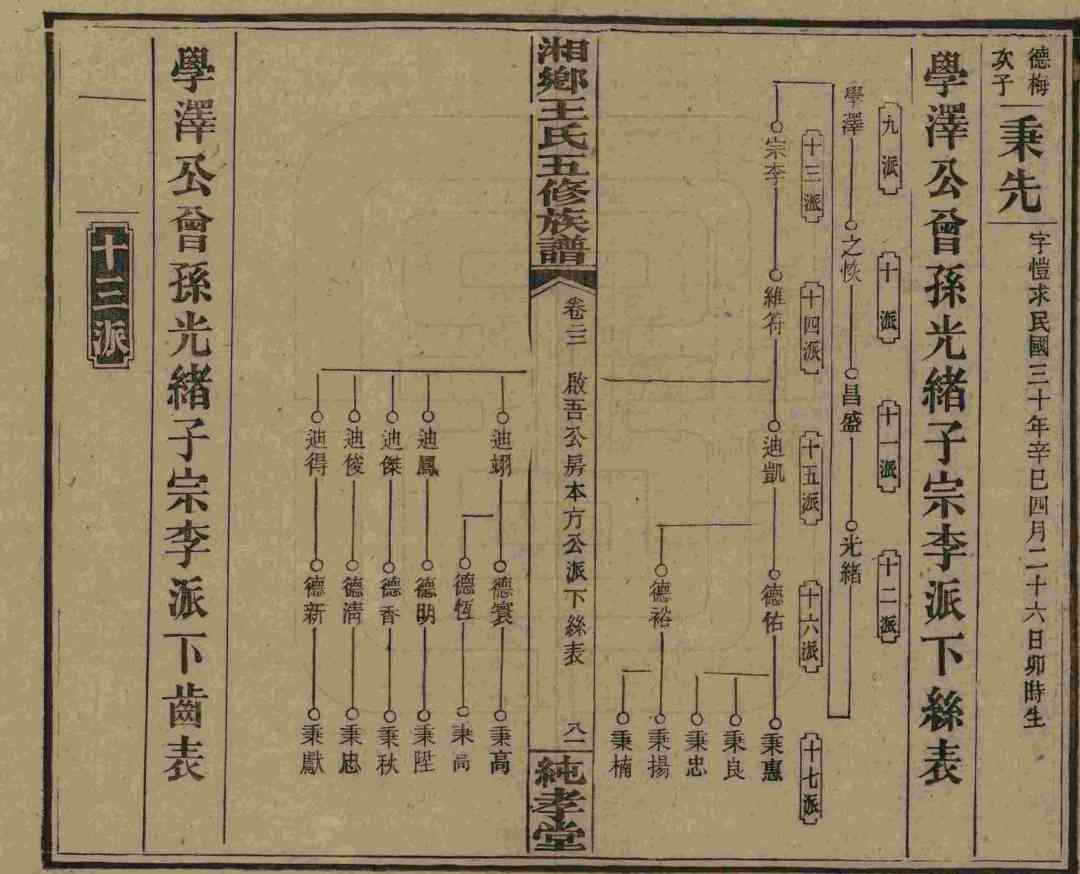 德梅
次子
秉先
字愷求民國三十年辛巳四月二十六日卯時生
學澤公曾孫光緒子宗李派下絲表
九派
十派
十一派
十二派
學澤
之恢
昌盛
光緒
十三派
十四派
十五派
十六派
十七派
宗李
維符
迪凱
德佑
秉惠
秉良
秉忠
德裕
秉揚
秉楠
湘鄉王氏五修族譜
卷二二
啟吾公房本方公派下絲表
八一
純孝堂
迪翊
德寰
秉高
德恆
秉高
迪鳳
德明
秉陞
迪傑
德香
秉秋
迪俊
德清
秉忠
迪得
德新
秉獻
學澤公曾孫光緒子宗李派下齒表
十三派